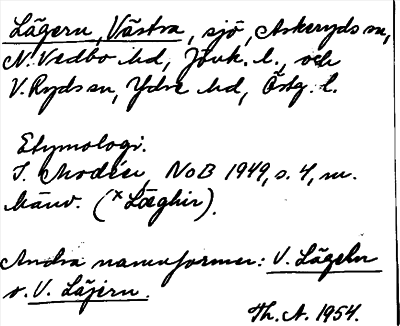 Lägern, Västra, sjö, Askeryds sn,
N. Vedbo hd, Jönk. l., och
V. Ryds sn, Ydre hd, Östg. l.
Etymologi.
I. Modéer, NoB 1949, s. 4, m.
hänv. (*Læghir).
Andra namnformer: V. Lägeln
o. V. Läjern.
Th. A. 1954.